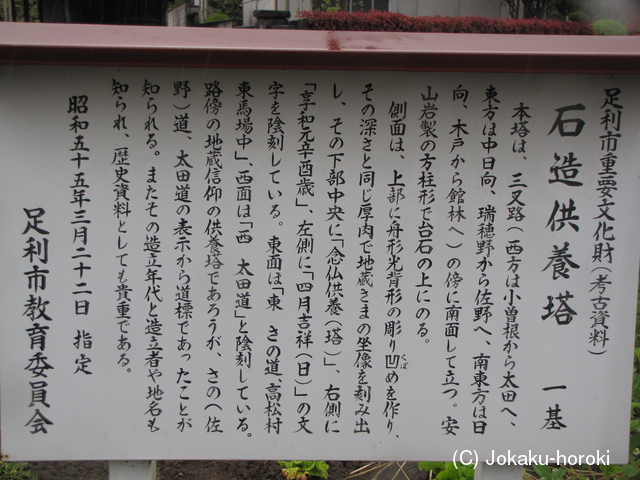 足利市重要文化財(考古資料)
石造供養塔 一基
本塔は、三叉路(西方は小曽根から太田へ、
東方は中日向、瑞穂野から佐野へ、南東方は日
向、木戸から館林へ)の傍に南面して立つ。安
山岩製の方柱形で台石の上にのる。
側面は、上部に舟形光背形の彫り凹めを作り、
くぼ
その深さと同じ厚肉で地蔵さまの坐像を刻み出
し、その下部中央に「念仏供養(塔)」、右側に
「享和元辛酉歳」、左側に「四月吉祥(日)」の文
字を陰刻している。東面は「東 さの道、高松村
東馬場中」、西面は「西 太田道」と陰刻している。
路傍の地蔵信仰の供養塔であろうが、さの(佐
野)道、太田道の表示から道標であったことが
知られる。またその造立年代と造立者や地名も
知られ、歴史資料としても貴重である。
昭和五十五年三月二十二日 指定
足利市教育委員会
(C) Jokaku-horoki